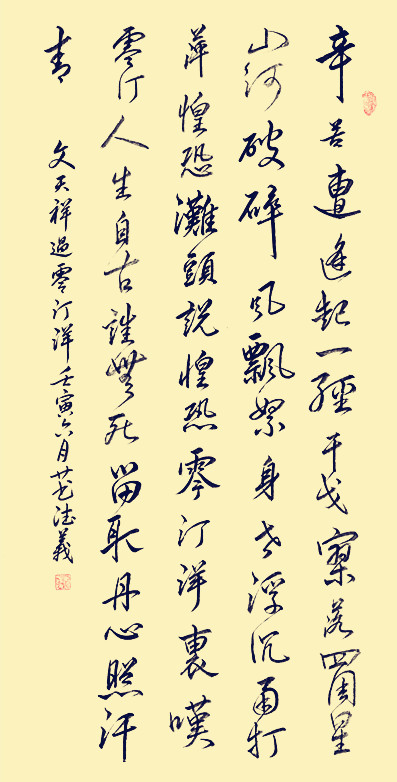 辛苦遭逢起一經干戈寥落四周星
山河破碎風飄絮身世浮沉雨打
萍惶恐灘頭說惶恐零汀洋裏嘆
零汀人生自古誰無死留取丹心照汗
青 文天祥過零汀洋壬寅六月義